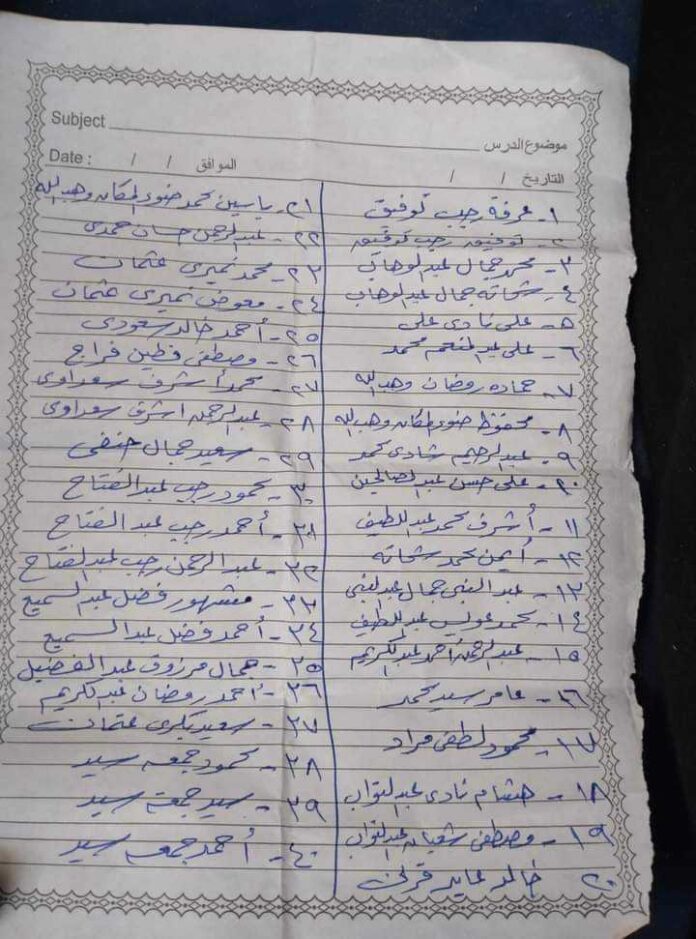 Subject
موضوع الدرس
Date : / /
الموافق
التاريخ / /
١- عرفة رجب توفيق
٢- توفيق رجب توفيق
٣- محمد جمال عبدالوهاب
٤- شحاته جمال عبدالوهاب
٥- على نادى على
٦- على عبدالمنعم محمد
٧- حماده رمضان وهب الله
٨- محفوظ ضنوى المكان وهب الله
٩- عبدالرحيم شادى محمد
١٠- على حسن عبدالصالحين
١١- أشرف محمد عبداللطيف
١٢- أيمن محمد شحاته
١٣- عبدالنبى جمال عبدالنبى
١٤- محمد عويس عبداللطيف
١٥- عبدالرحمن أحمد عبدالكريم
١٦- عامر سيد محمد
١٧- محمود لطفى مراد
١٨- هشام نادى عبدالتواب
١٩- مصطفى شعبان عبدالتواب
٢٠ خالد عايد قرنى
٢١- ياسين محمد ضنوى المكان وهب الله
٢٢- عبدالرحمن حسان حمدى
٢٣- محمد نميرى عثمان
٢٤- معوض نميرى عثمان
٢٥- أحمد خالد سعودى
٢٦- مصطفى فطين فراج
٢٧- محمد أشرف سعداوى
٢٨- عبدالرحمن اشرف سعداوى
٢٩- سعيد جمال حنفى
٣٠- محمود رجب عبدالفتاح
٣١- أحمد رجب عبد الفتاح
٣٢- عبدالرحمن رجب عبدالفتاح
٣٣- مشهور فضل عبدالسميع
٣٤- أحمد فضل عبدالسميع
٣٥- جمال مرزوق عبدالفضيل
٣٦- أحمد رمضان عبدالكريم
٣٧- سعيد بكرى عثمان
٣٨- محمود جمعه سيد
٣٩- سيد جمعة سيد
٤٠- أحمد جمعه سيد